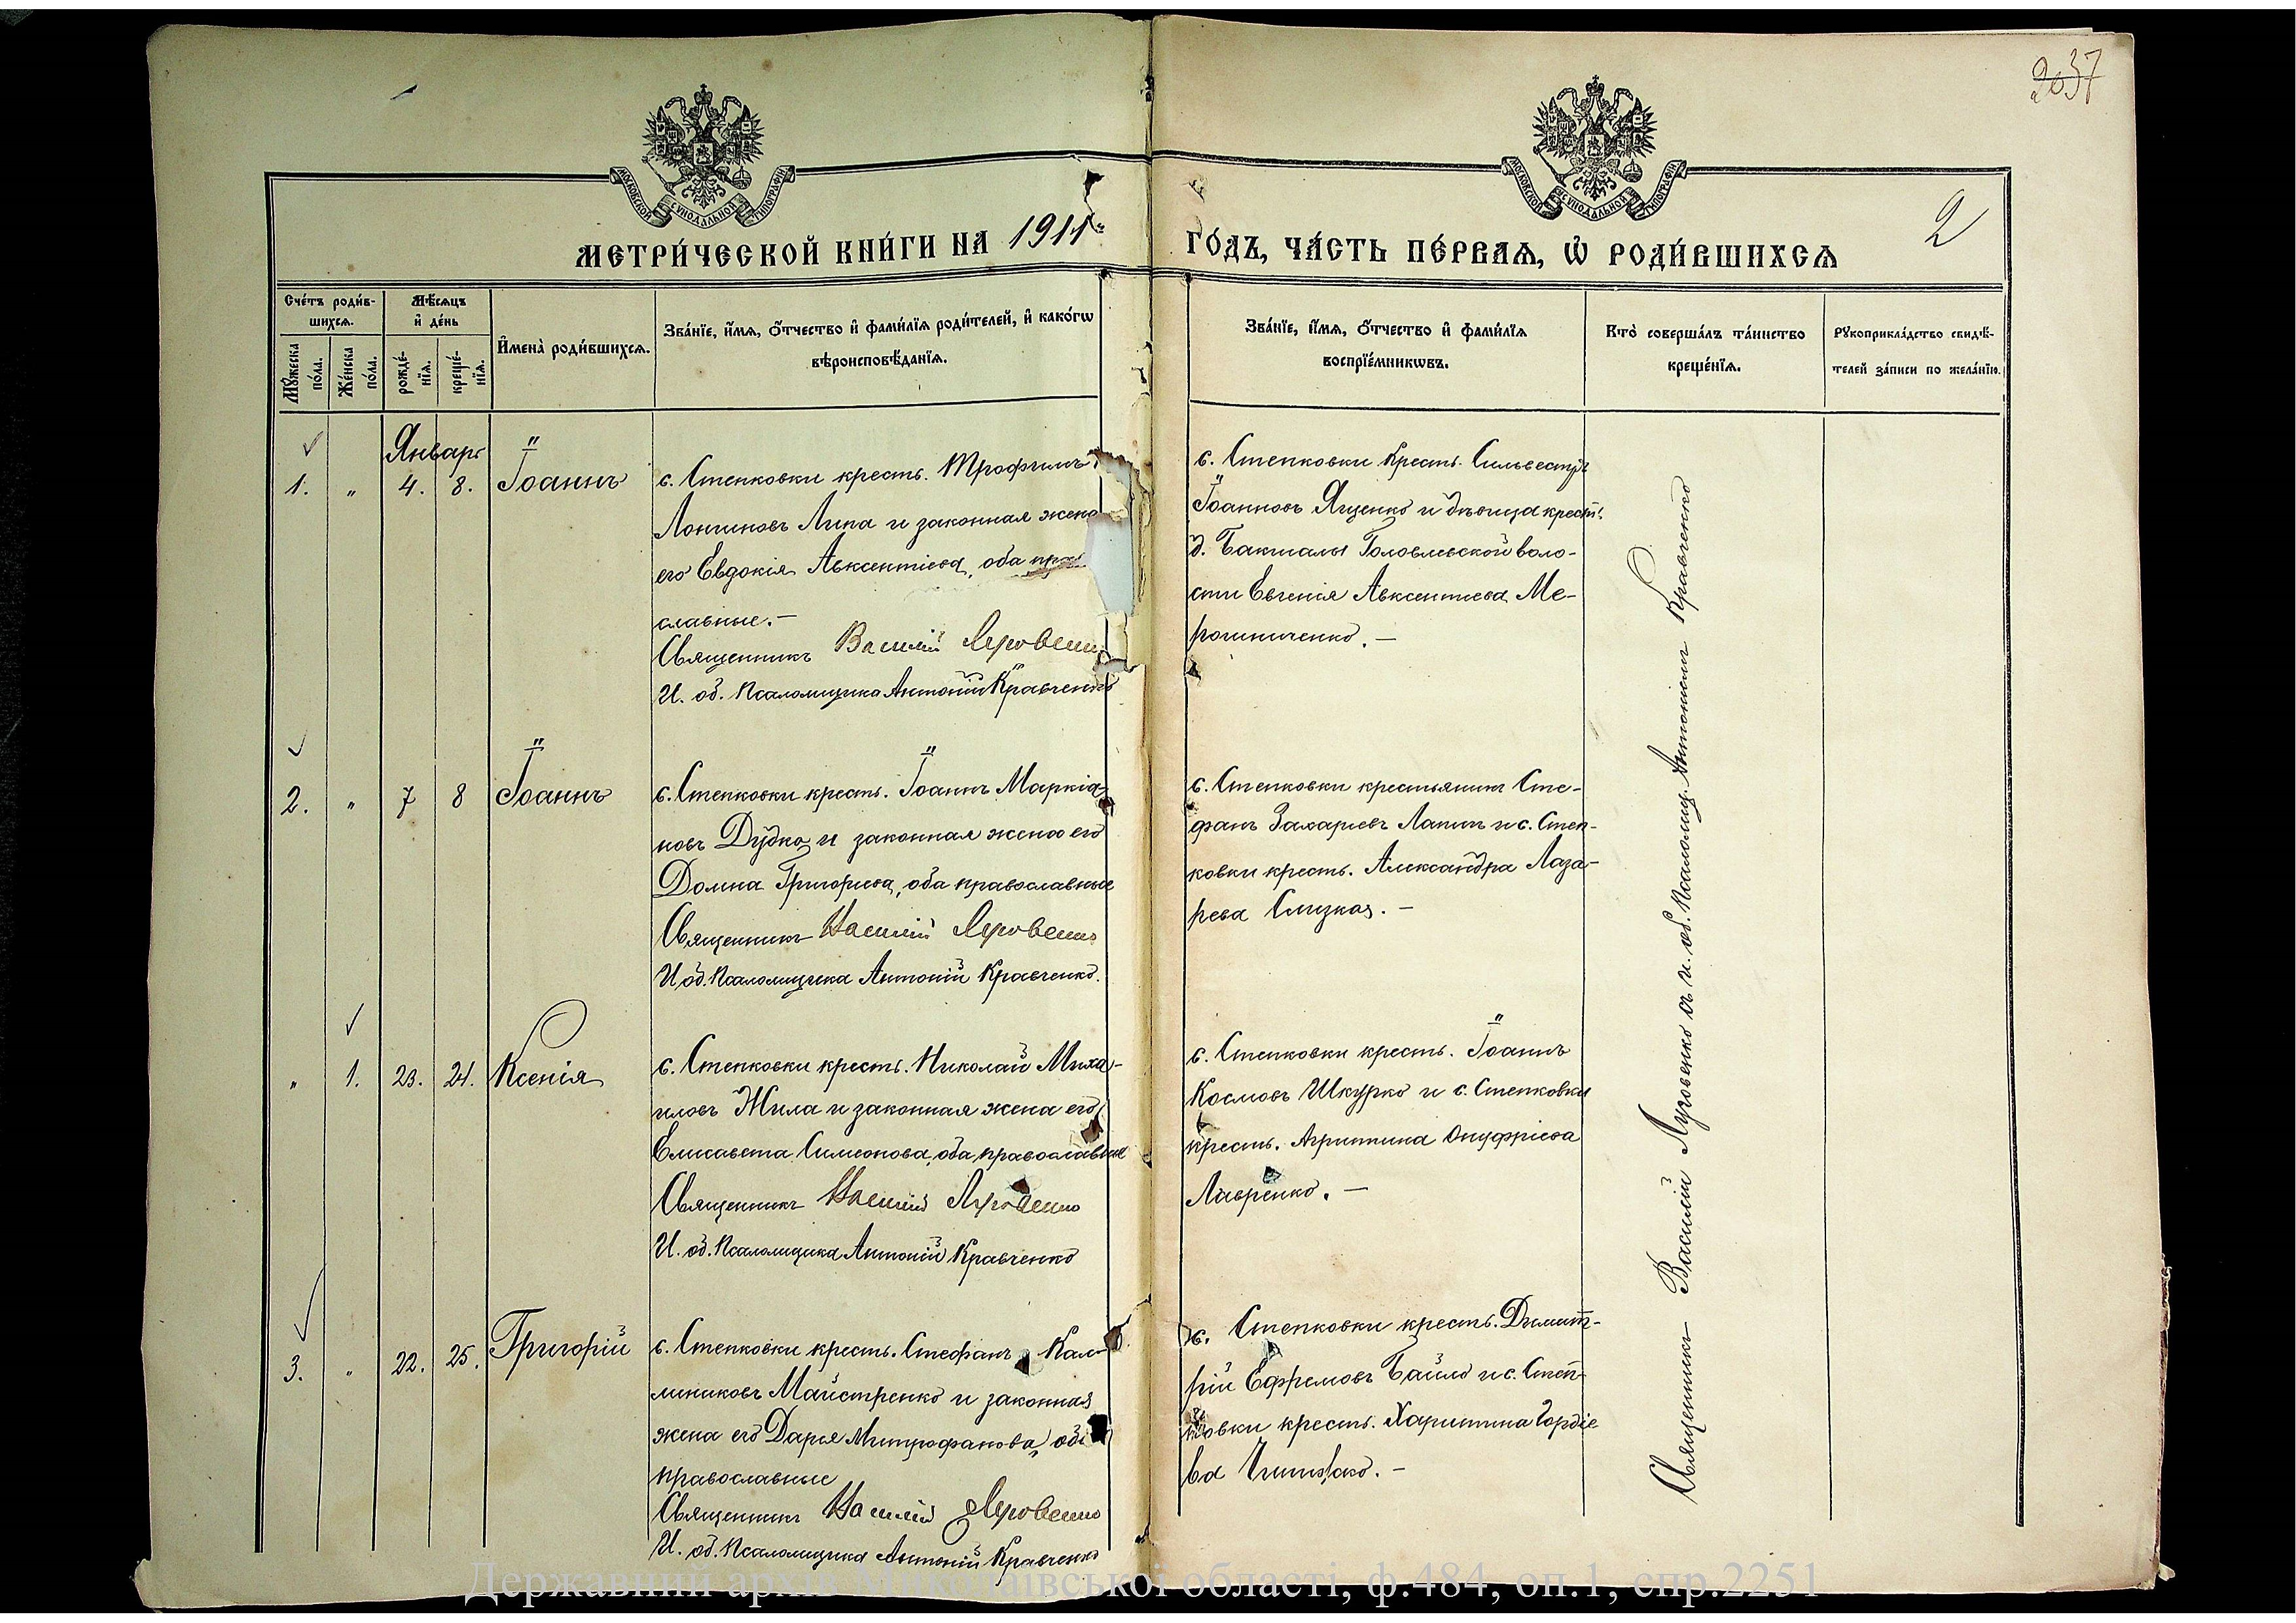 2037
МОСКОВСКОЙ СѴНОДАЛЬНОЙ ТИПОГРАФІИ
МОСКОВСКОЙ СѴНОДАЛЬНОЙ ТИПОГРАФІИ
МЕТРИ́ЧЕСКОЙ КНИ́ГИ НА 1911
ГО́ДЪ, ЧА́СТЬ ПЕ́РВАѦ, Ѡ҆ РОДИ́ВШИХСѦ
2
Сче́тъ роди́в-
шихсѧ.
Мѣ́сѧцъ
и҆ де́нь
Мꙋ́жеска
по́ла.
Же́нска
по́ла.
рожде́-
нїѧ.
креще́-
нїѧ.
И҆мена̀ роди́вшихсѧ.
Зва́нїе, и҆́мѧ, ѻ҆́тчество и҆ фами́лїѧ роди́телей, и҆ како́гѡ
вѣроисповѣ́данїѧ.
Зва́нїе, и҆́мѧ, ѻ҆́тчество и҆ фами́лїѧ
воспрїе́мникѡвъ.
Кто̀ соверша́лъ та́инство
креще́нїѧ.
Рꙋкоприкла́дство свидѣ́-
телей за́писи по жела́нїю.
Январь
1. " 4. 8. Іоаннъ
с. Степковки кресть. Трофимъ
Лонгиновъ Липа и законная жена
его Евдокія Авксентіева, оба пра
славные.-
Священникъ Василій Луговенко
И. об. Псаломщика Антоній Кравченко
с. Степковки кресть. Сильвестръ
Іоанновъ Яценко и дѣвица крест.
д. Бакшалы Головлевской воло-
сти Евгенія Авксентиева Ме-
рошниченко. -
2. " 7 8 Іоаннъ
с. Степковки кресть. Іоаннъ Маркіа-
новъ Дудко и законная жена его
Домна Григориева, оба православные
Священникъ Василій Луговенко
И об. Псаломщика Антоній Кравченко.
с. Степковки крестьянинъ Сте-
фанъ Захариевъ Лапинъ и с. Степ-
ковки кресть. Александра Лаза-
рева Слизкая. -
" 1. 23. 24. Ксенія
с. Степковки кресть. Николай Миха-
иловъ Жила и законная жена его
Елисавета Симеонова, оба православные
Священникъ Василій Луговенко
И. об. Псаломщика Антоній Кравченко
с. Степковки кресть. Іоаннъ
Космовъ Шкурко и с. Степковки
кресть. Агриппина Онуфріева
Лавренко. -
3. " 22. 25. Григорій
с. Степковки кресть. Стефанъ Кал-
линиковъ Майстренко и законная
жена его Дарья Митрофанова, оба
православные
Священникъ Василій Луговенко
И. об. Псаломщика Антоній Кравченко
с. Степковки кресть. Димит-
рій Ефремовъ Байло и с. Степ-
ковки кресть. Харитина Гордіе
ва
Священникъ Василій Луговенко съ и. об. Псаломщ. Антоніемъ Кравченко
Державний архів Миколаївської області, ф.484, оп.1, спр.2251